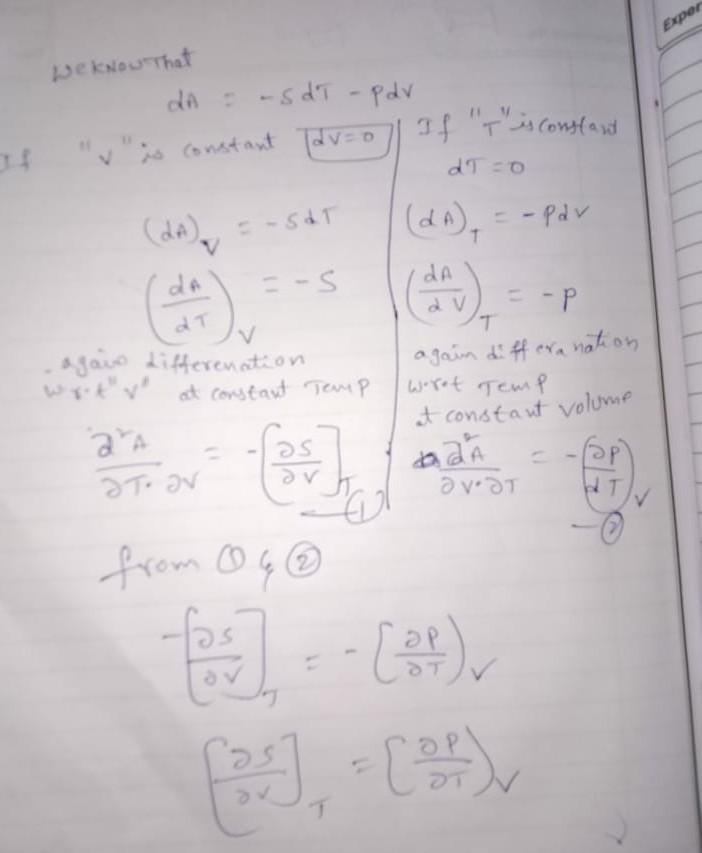 Exper
We Know That
dA = -SdT - pdv
If "v" is constant dv=0
(dA)_V = -SdT
(dA/dT)_V = -S
again differenation
w.r.t "v" at constant Temp
∂²A/∂T·∂V = -[∂S/∂V]_T —①
If "T" is constant
dT = 0
(dA)_T = -Pdv
(dA/dV)_T = -P
again differanation
w.r.t Temp
at constant volume
∂²A/∂V·∂T = -(∂P/dT)_V —②
from ① & ②
-[∂S/∂V]_T = -[∂P/∂T)_V
[∂S/∂V]_T = [∂P/∂T)_V